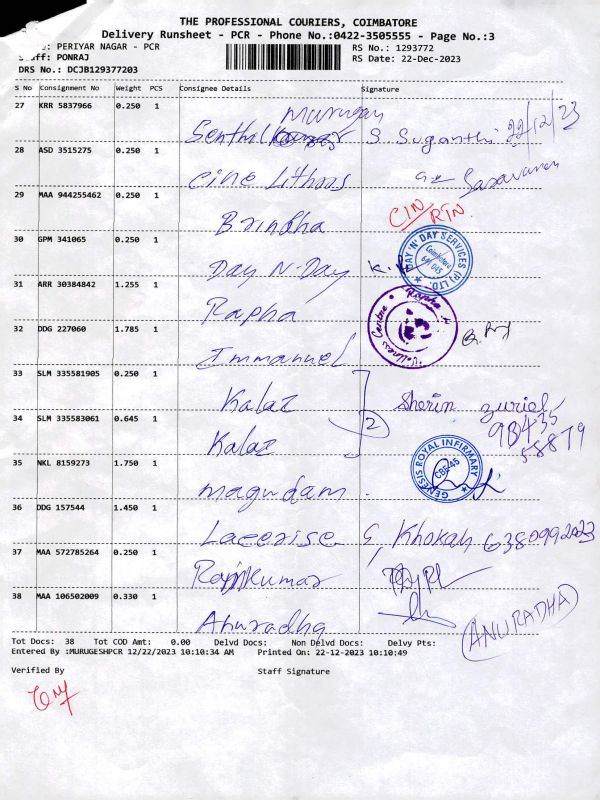 THE PROFESSIONAL COURIERS, COIMBATORE
Delivery Runsheet - PCR - Phone No.:0422-3505555 - Page No.:3
: PERIYAR NAGAR - PCR RS No.: 1293772
Staff: PONRAJ RS Date: 22-Dec-2023
DRS No.: DCJB129377203
S No Consignment No Weight PCS Consignee Details Signature
27 KRR 5837966 0.250 1
Senthil Murugan S. Suganthi 22/12/23
28 ASD 3515275 0.250 1
Cine Lithoos Saravanan
29 MAA 944255462 0.250 1
Brindha CIN/RTN
30 GPM 341065 0.250 1
Day N-Day
DAY 'N' DAY SERVICES (P) LTD.
Coimbatore 641 045
31 ARR 30384842 1.255 1
Rapha
Rapha Wellness Centre
32 DDG 227060 1.785 1
Immanuel
33 SLM 335581905 0.250 1
Kalai Sherin zuriel
34 SLM 335583061 0.645 1
Kalai 2 98435 58879
35 NKL 8159273 1.750 1
magudam.
GENESIS ROYAL INFIRMARY
CBE-45
36 DDG 157544 1.450 1
Lacerise S, Khokan 6380992023
37 MAA 572785264 0.250 1
Rajkumar
38 MAA 106502009 0.330 1
Anuradha (ANURADHA)
Tot Docs: 38 Tot COD Amt: 0.00 Delvd Docs: Non Delvd Docs: Delvy Pts:
Entered By :MURUGESHPCR 12/22/2023 10:10:34 AM Printed On: 22-12-2023 10:10:49
Verified By Staff Signature